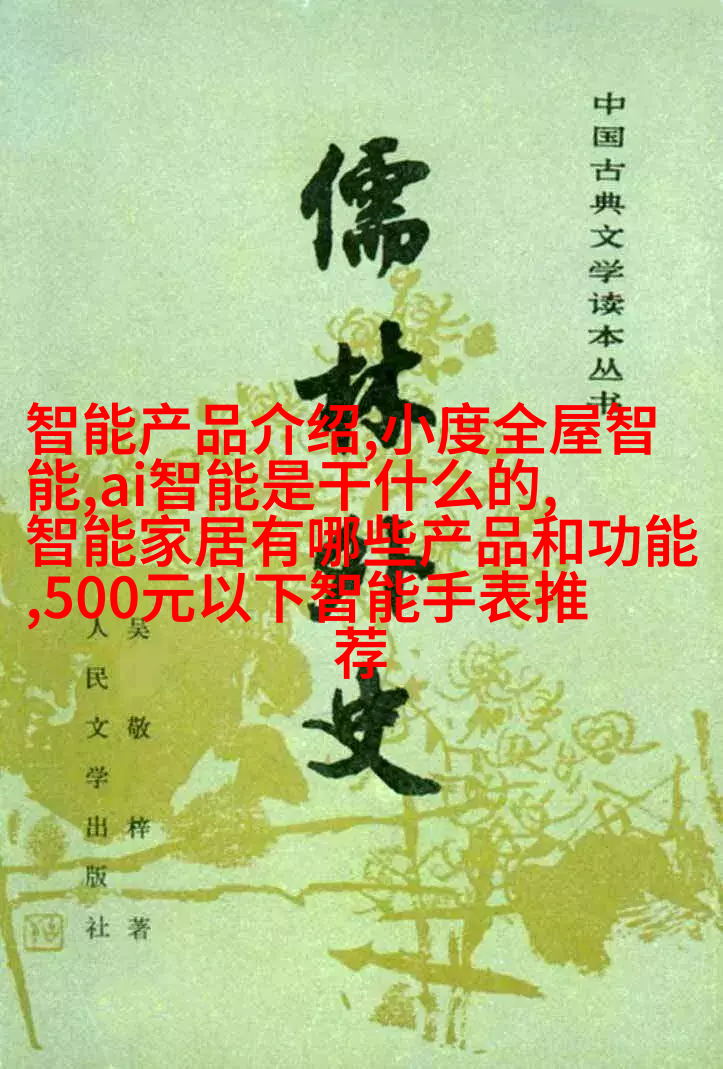 中国古典文学读本丛书
儒林外史
智能产品介绍,小度全屋智
能,ai智能是干什么的,
智能家居有哪些产品和功能
,500元以下智能手表推
荐
吴敬梓著
人民文学出版社